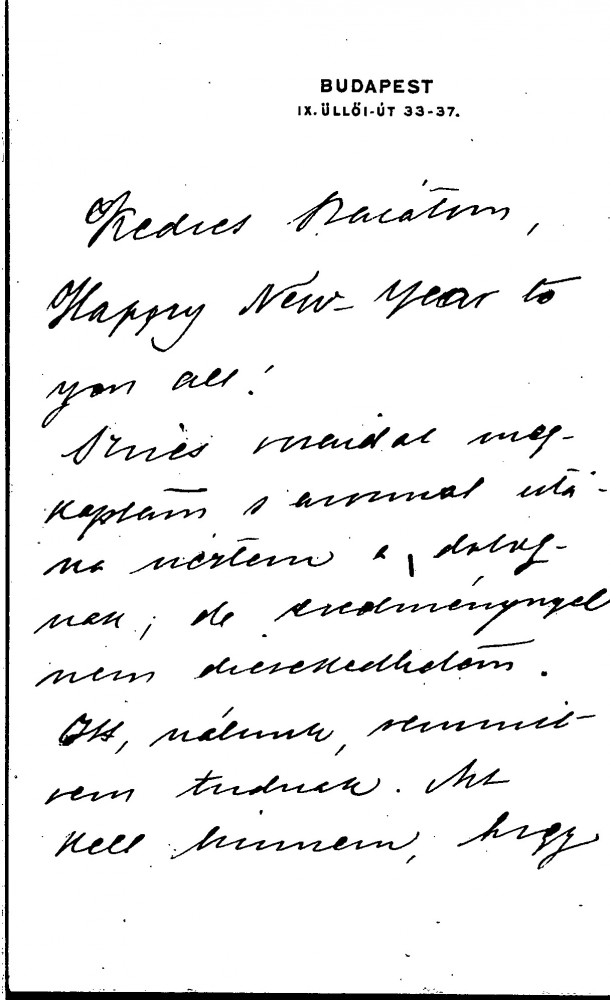 BUDAPEST
IX. ÜLLŐI-ÚT 33-37.
Kedves Barátom,
Happy New-Year to
you all!
Szíves soraidat meg-
kaptam s azonnal utá-
na néztem a dolog-
nak; de eredménynyel
nem dicsekedhetem.
Itt, nálunk, semmit
sem tudnak. Azt
kell hinnem, hogy